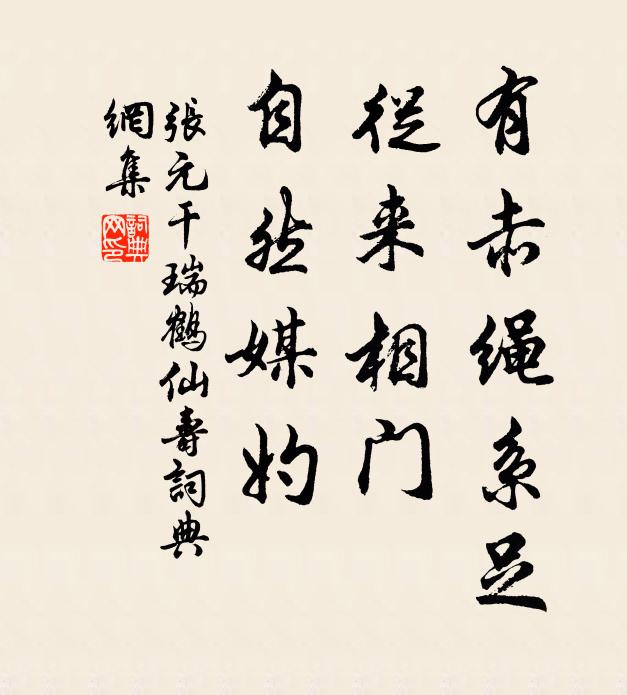 有赤绳系足
從来相门
自然媒妁
張元干瑞鶴仙壽詞典
網集
詞典
网印